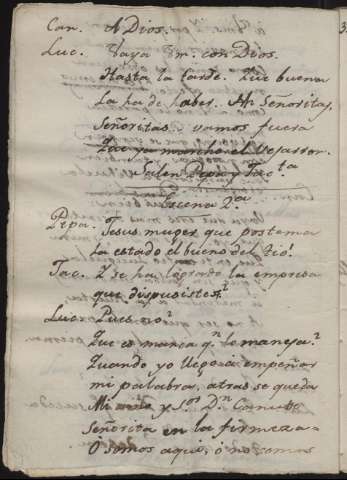 Can. A Dios.
Luc. Vaya Vm. con Dios.
Hasta la tarde. Que buena
La ha de haber. Ah Señoritas,
Señoritas vamos fuera
Que ya marchó el
Salen Pepa y Jac.ta
Escena 2.ª
Pepa. Jesus muger que postema
ha estado el bueno del tio!
Jac. Y se ha logrado la empresa
que dispusistes?
Luc. Pues no?
Que es manca qn. lo maneja?
Quando yo llegara empeñar
mi palabra, atras se queda
Mi y Sor. Dn. Canuto
Señorita en la firmeza
O somos aqui, ó no somos